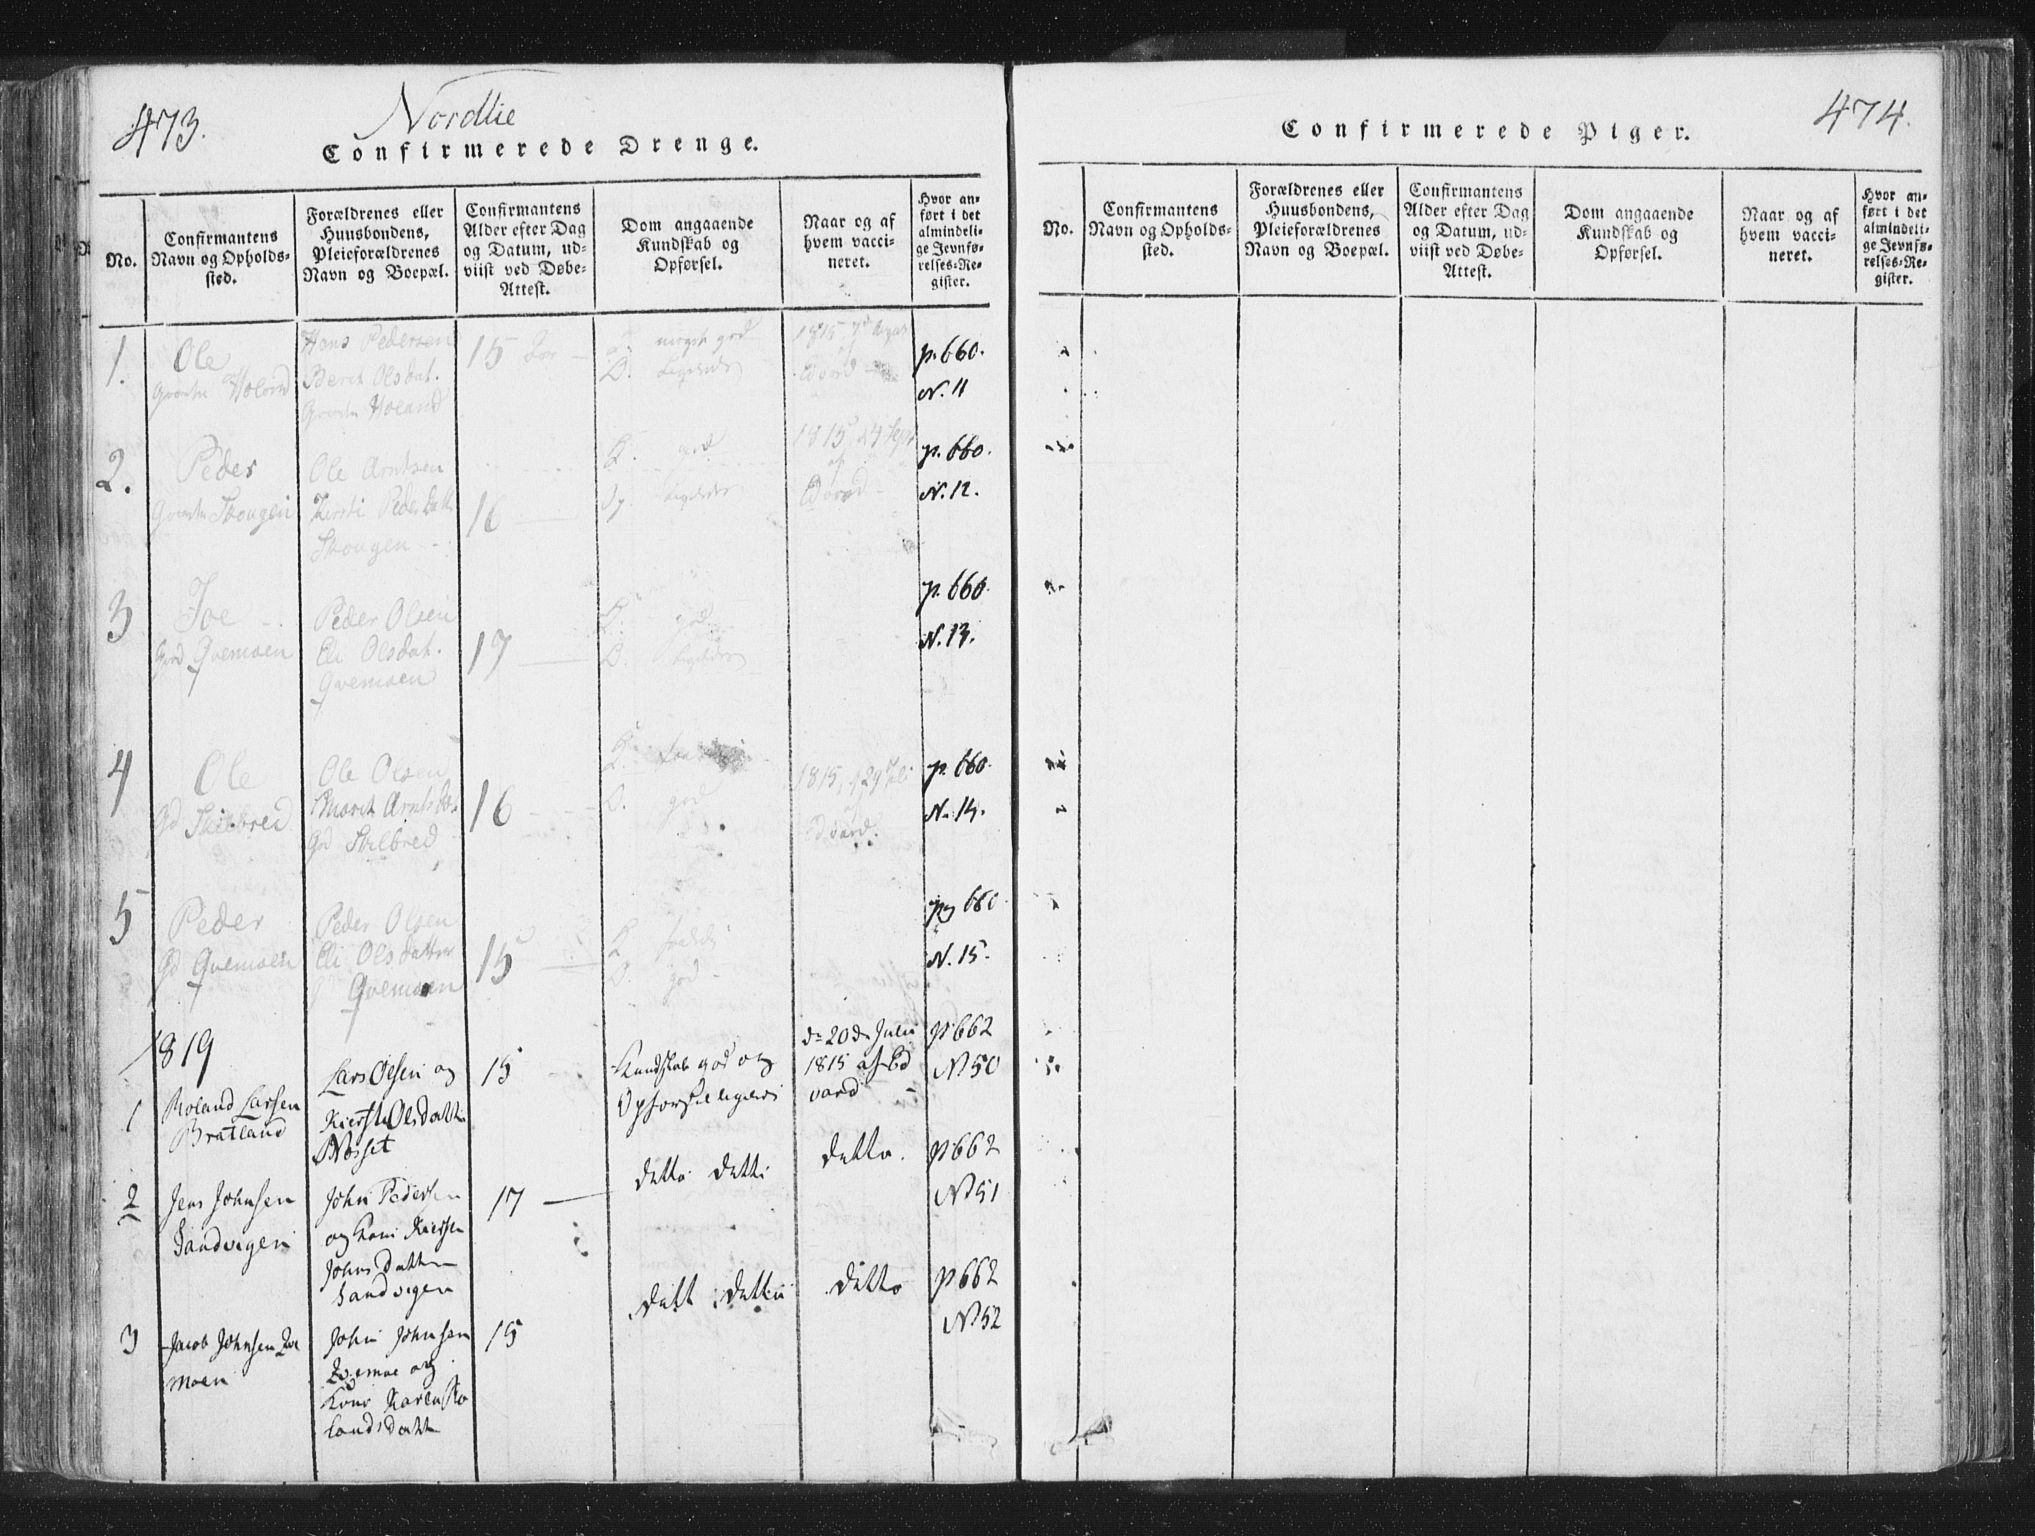 473.
Nordlie
Confirmerede Drenge.
No.
Confirmantens
Navn og Opholds-
sted.
Forældrenes eller
Huusbondens,
Pleieforældrenes
Navn og Boepæl.
Confirmantens
Alder efter Dag
og Datum, ud-
viist ved Døbe-
Attest.
Dom angaaende
Kundskab og
Opførsel.
Naar og af
hvem vacci-
neret.
Hvor an-
ført i det
almindeli-
ge Jevnfø-
relses-Re-
gister.
1.
Ole
Holand
Hans Pedersen
Berit Olsdat.
Holand
15
K. meget god
1815
p. 660.
N. 11
2.
Peder
Skougen
Ole Arntsen
Kirsti Peders
Skougen
16
K. god
1815
p. 660.
N. 12.
3
Joe
Qvemoen
Peder Olsen
Eli Olsdat.
Qvemoen
17
K. god
p. 660.
N. 13.
4
Ole
Gd Skilbred
Ole Olsen
Marit Arnts
Gd Skilbred
16
K.
O. god
1815, 29 Juli
af
Edvard.
p. 660.
N. 14.
5
Peder
Gd Qvemoen
Peder Olsen
Eli Olsdatter
Qvemoen
15
K.
O. god
pg 660
N. 15.
1819
1
Roland Larsen
Bratland
Lars Olsen og
Olsdatter
Nosset
15
Kundskab god og
Opførsel
d. 20de Julii
1815 af Ed
vard
p 662
N 50
2
Jens Johnsen
Sandvigen
John Pedersen
og Kone
Johnsdatter
Sandvigen
17
detto detto
detto.
p 662
N 51
3
Jacob Johnsen Qve
moen
John Johnsen
Qvemoe og
Kone Karen Ro
landsdatter
15
detto
ditto
p 662
N 52
474.
Confirmerede Piger.
No.
Confirmantens
Navn og Opholds-
sted.
Forældrenes eller
Huusbondens,
Pleieforældrenes
Navn og Boepæl.
Confirmantens
Alder efter Dag
og Datum, ud-
viist ved Døbe-
Attest.
Dom angaaende
Kundskab og
Opførsel.
Naar og af
hvem vacci-
neret.
Hvor an-
ført i det
almindeli-
ge Jevnfø-
relses-Re-
gister.